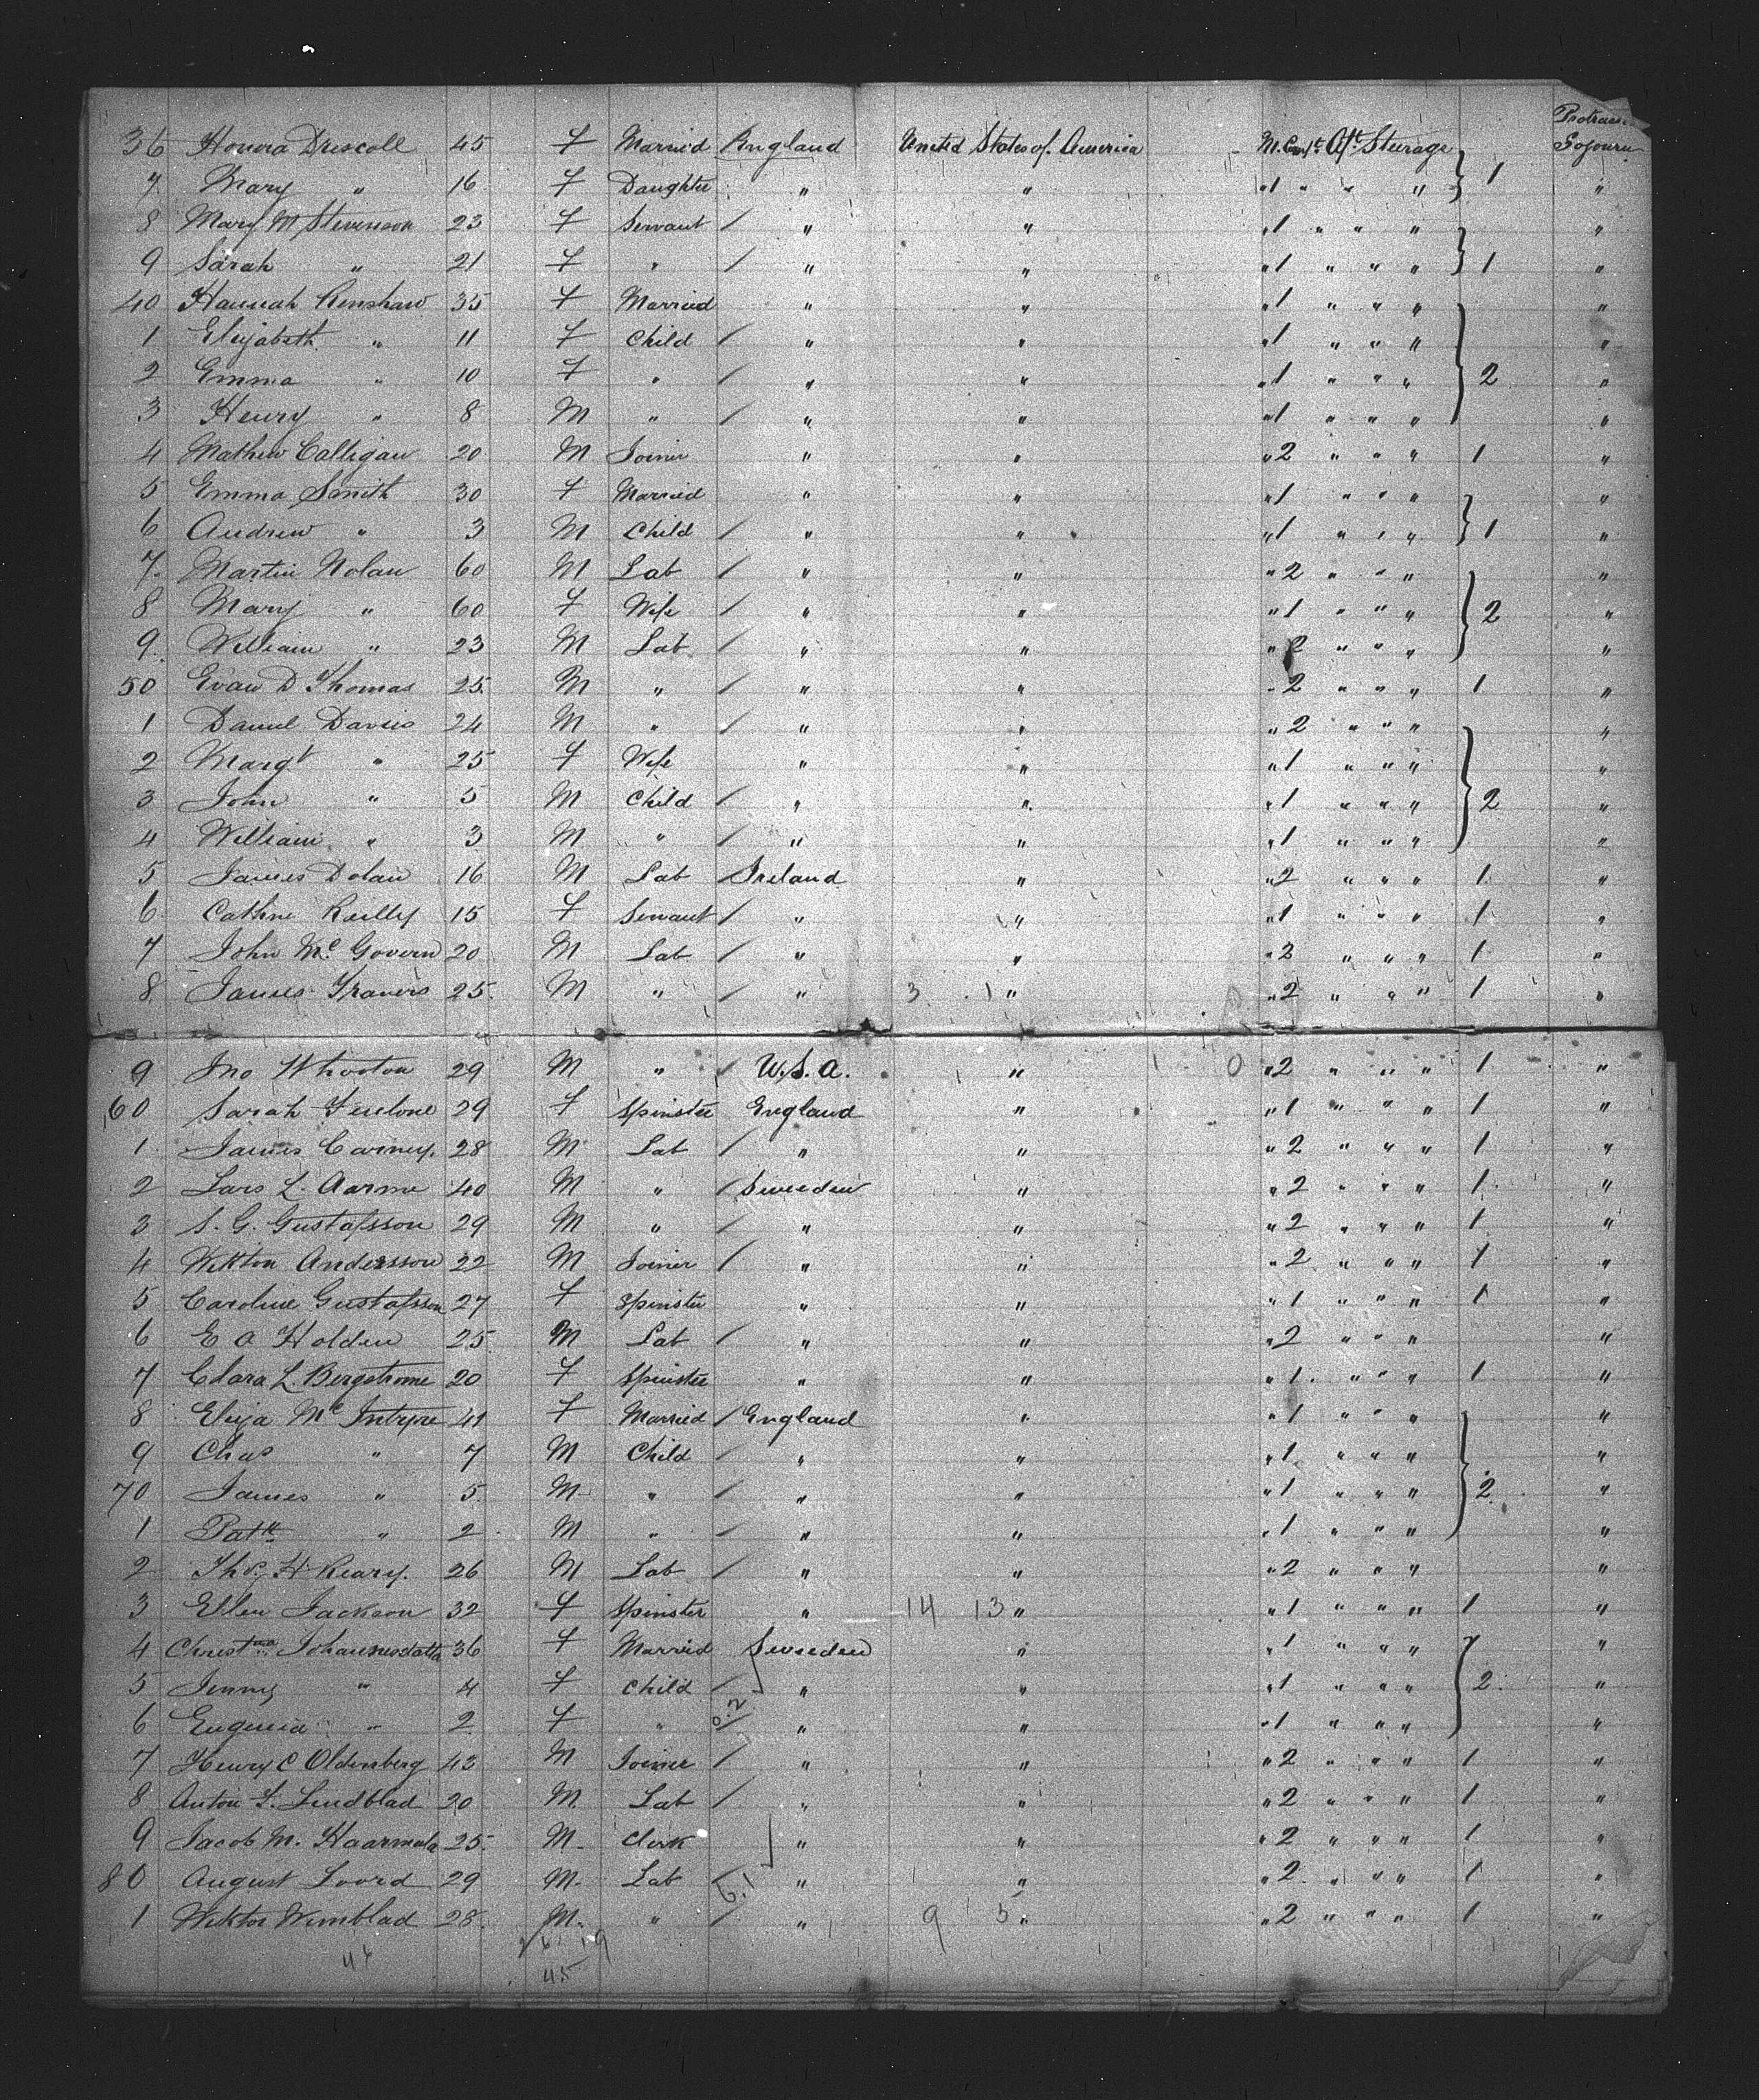 Protrac
36 Honora Driscoll 45 f Married England United States of America M. Comp't Aft Steerage Sojourn
7 Mary " 16 f Daughter " " " 1 " " " } 1 "
8 Mary M Stevenson 23 f Servant / " " " 1 " " " "
9 Sarah " 21 f " / " " " 1 " " " } 1 "
40 Hannah Renshaw 35 f Married " " " 1 " " " "
1 Elizabeth " 11 f Child / " " " 1 " " " "
2 Emma " 10 f " / " " " 1 " " " } 2 "
3 Henry " 8 M " / " " " 1 " " " "
4 Mathew Calligan 20 M Joiner " " " 2 " " " 1 "
5 Emma Smith 30 f Married " " " 1 " " " "
6 Andrew " 3 M Child / " " " 1 " " " } 1 "
7 Martin Nolan 60 M Lab / " " " 2 " " " "
8 Mary " 60 f Wife / " " " 1 " " " } 2 "
9 William " 23 M Lab / " " " 2 " " " "
50 Evan D Thomas 25 M " / " " " 2 " " " 1 "
1 Daniel Davies 24 M " / " " " 2 " " " "
2 Margt " 25 f Wife " " " 1 " " " "
3 John " 5 M Child / " " " 1 " " " } 2 "
4 William " 3 M " / " " " 1 " " " "
5 James Dolan 16 M Lab / Ireland " " 2 " " " 1 "
6 Cathne Reilly 15 f Servant / " " " 1 " " " 1 "
7 John Mc Govern 20 M Lab / " " " 2 " " " 1 "
8 James Travers 25 M " / " 3 1 " " 2 " " " 1 "
9 Jno 29 M " / U.S.A. " 0 " 2 " " " 1 "
60 Sarah 29 f Spinster England " " 1 " " " 1 "
1 James Carney 28 M Lab / " " " 2 " " " 1 "
2 Lars L. Aarme 40 M " / Sweeden " " 2 " " " 1 "
3 S. G. Gustafsson 29 M " / " " " 2 " " " 1 "
4 Andersson 22 M Joiner / " " " 2 " " " 1 "
5 Caroline Gustafsson 27 f Spinster " " " 1 " " " 1 "
6 E A Holden 25 M Lab / " " " 2 " " " "
7 Clara L. Bergstrome 20 f Spinster " " " 1 " " " 1 "
8 Eliza Mc Intyre 41 f Married / England " " 1 " " " "
9 Chas " 7 M Child / " " " 1 " " " "
70 James " 5 M " / " " " 1 " " " } 2 "
1 Patk " 2 M " / " " " 1 " " " "
2 Thos. H Keary 26 M Lab / " " " 2 " " " "
3 Ellen Jackson 32 f Spinster " 14 13 " " 1 " " " 1 "
4 Christna 36 f Married Sweeden " " 1 " " " "
5 Jenny " 4 f Child / " " " 1 " " " } 2 "
6 Eugenia " 2 f " 0.2 " " " 1 " " " "
7 Henry C Oldenberg 43 M Joiner / " " " 2 " " " 1 "
8 Anton F. Lindblad 20 M Lab / " " " 2 " " " 1 "
9 Jacob M. Haarmala 25 M Clerk " " " 2 " " " 1 "
80 August Loord 29 M Lab / " " " 2 " " " 1 "
1 Wiktor Wimblad 28 M " / " 9 5 " " 2 " " " 1 "
46 19
45